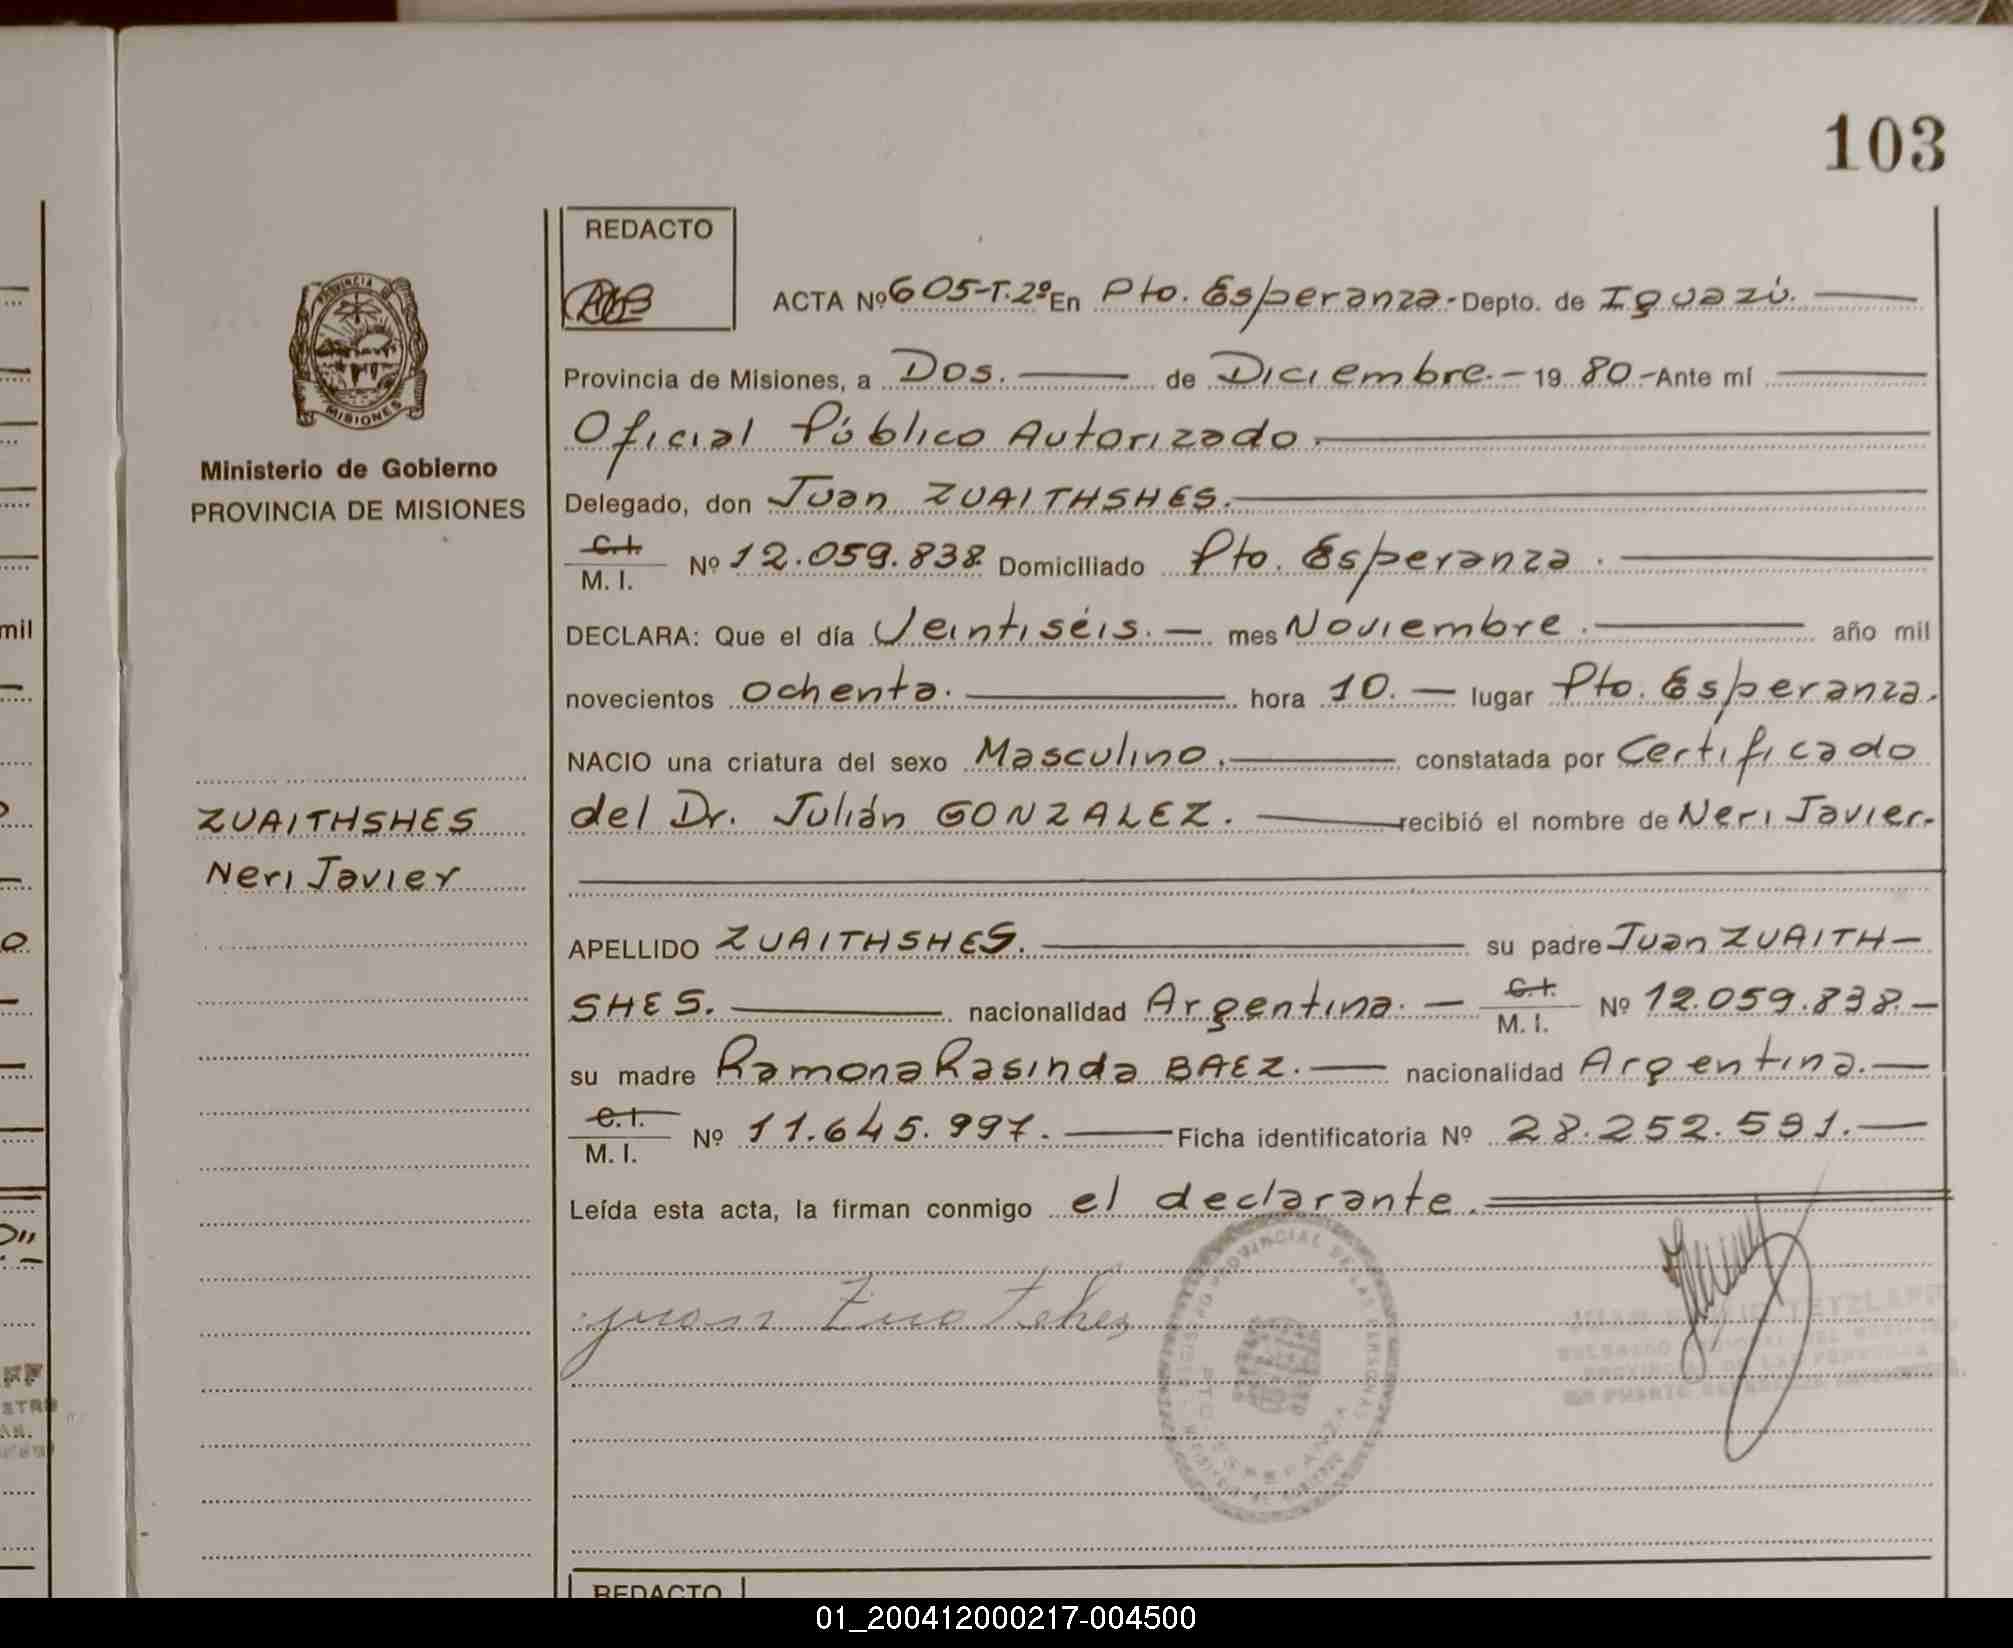 103
REDACTO
ACTA Nº 605-T.2º En Pto. Esperanza.- Depto. de Iguazú.
PROVINCIA DE
MISIONES
Provincia de Misiones, a Dos. de Diciembre.- 19 80.- Ante mí
Oficial Público Autorizado.
Ministerio de Gobierno
PROVINCIA DE MISIONES
Delegado, don Juan ZUAITHSHES.
C.I.
M. I. Nº 12.059.838. Domiciliado Pto. Esperanza.
mil
DECLARA: Que el día Veintiséis.- mes Noviembre. año mil
novecientos ochenta. hora 10.- lugar Pto. Esperanza.
NACIO una criatura del sexo Masculino. constatada por Certificado
ZUAITHSHES
Neri Javier
del Dr. Julián GONZALEZ. recibió el nombre de Neri Javier.
APELLIDO ZUAITHSHES. su padre Juan ZUAITH-
SHES. nacionalidad Argentina.- C.I.
M. I. Nº 12.059.838.-
su madre Ramona Rasinda BAEZ.- nacionalidad Argentina.-
C.I.
M. I. Nº 11.645.997. Ficha identificatoria Nº 28.252.591.-
Leída esta acta, la firman conmigo el declarante.
PROVINCIAL DE LAS PERSONAS
PTO ESPERANZA
REDACTO
01_200412000217-004500